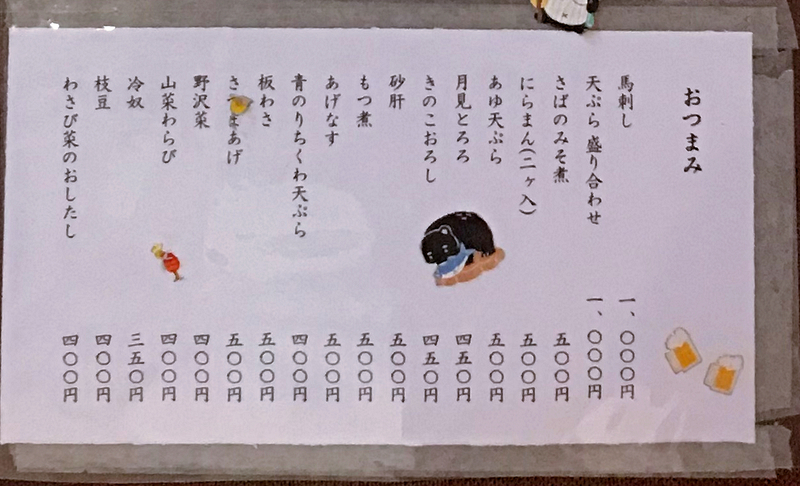 おつまみ
馬刺し 一、〇〇〇円
天ぷら 盛り合わせ 一、〇〇〇円
さばのみそ煮 五〇〇円
にらまん(二ヶ入) 五〇〇円
あゆ天ぷら 五〇〇円
月見とろろ 四五〇円
きのこおろし 四五〇円
砂肝 五〇〇円
もつ煮 五〇〇円
あげなす 五〇〇円
青のりちくわ天ぷら 四〇〇円
板わさ 五〇〇円
さ まあげ 五〇〇円
野沢菜 四〇〇円
山菜わらび 四〇〇円
冷奴 三五〇円
枝豆 四〇〇円
わさび菜のおしたし 四〇〇円